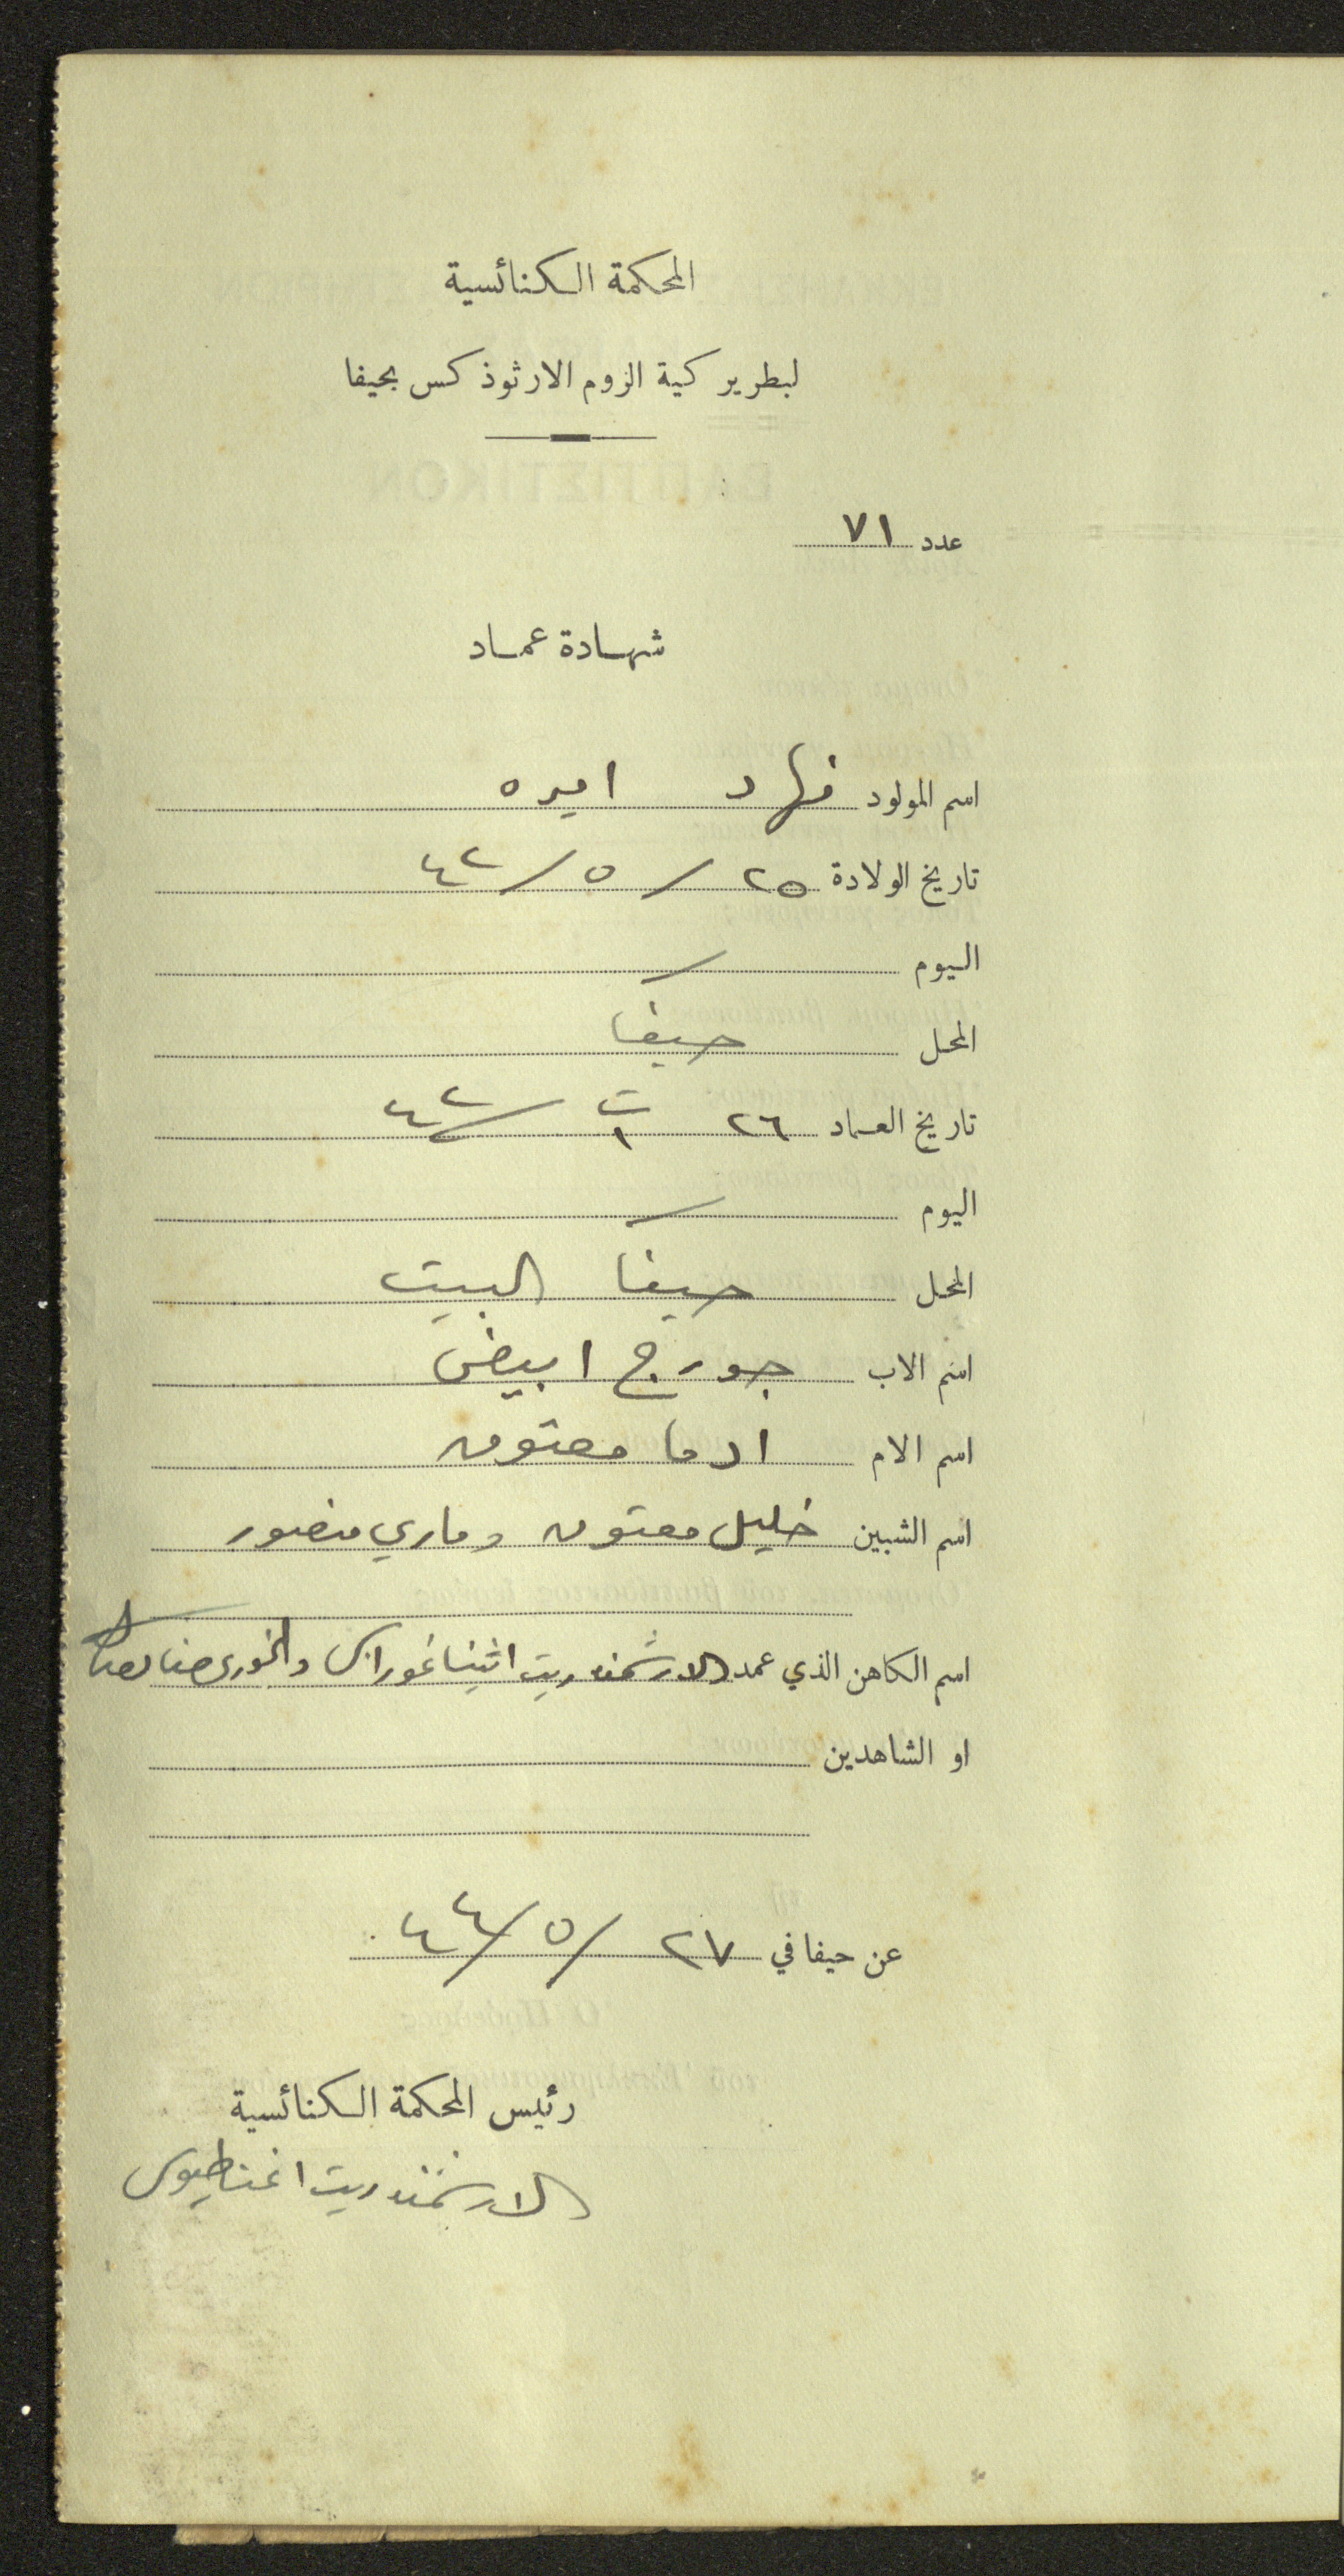 المحكمة الكنائسية
لبطريركية الروم الارثوذكس بحيفا
عدد ٧١
شهادة عماد
اسم المولود فهاد اميره
تاريخ الولادة ٢٥ / ٥ / ٤٢
اليوم
المحل حيفا
تاريخ العماد ٢٦ ت١ / ٤٢
اليوم
المحل حيفا البيت
اسم الاب جورج ابيض
اسم الام ادما معتوق
اسم الشبين خليل معتوق وماري منصور
اسم الكاهن الذي عمد الارشمندريت اثيناغوراس والخوري حنا
او الشاهدين
عن حيفا في ٢٧ / ٥ / ٤٤
رئيس المحكمة الكنائسية
الارشمندريت اغناطيوس